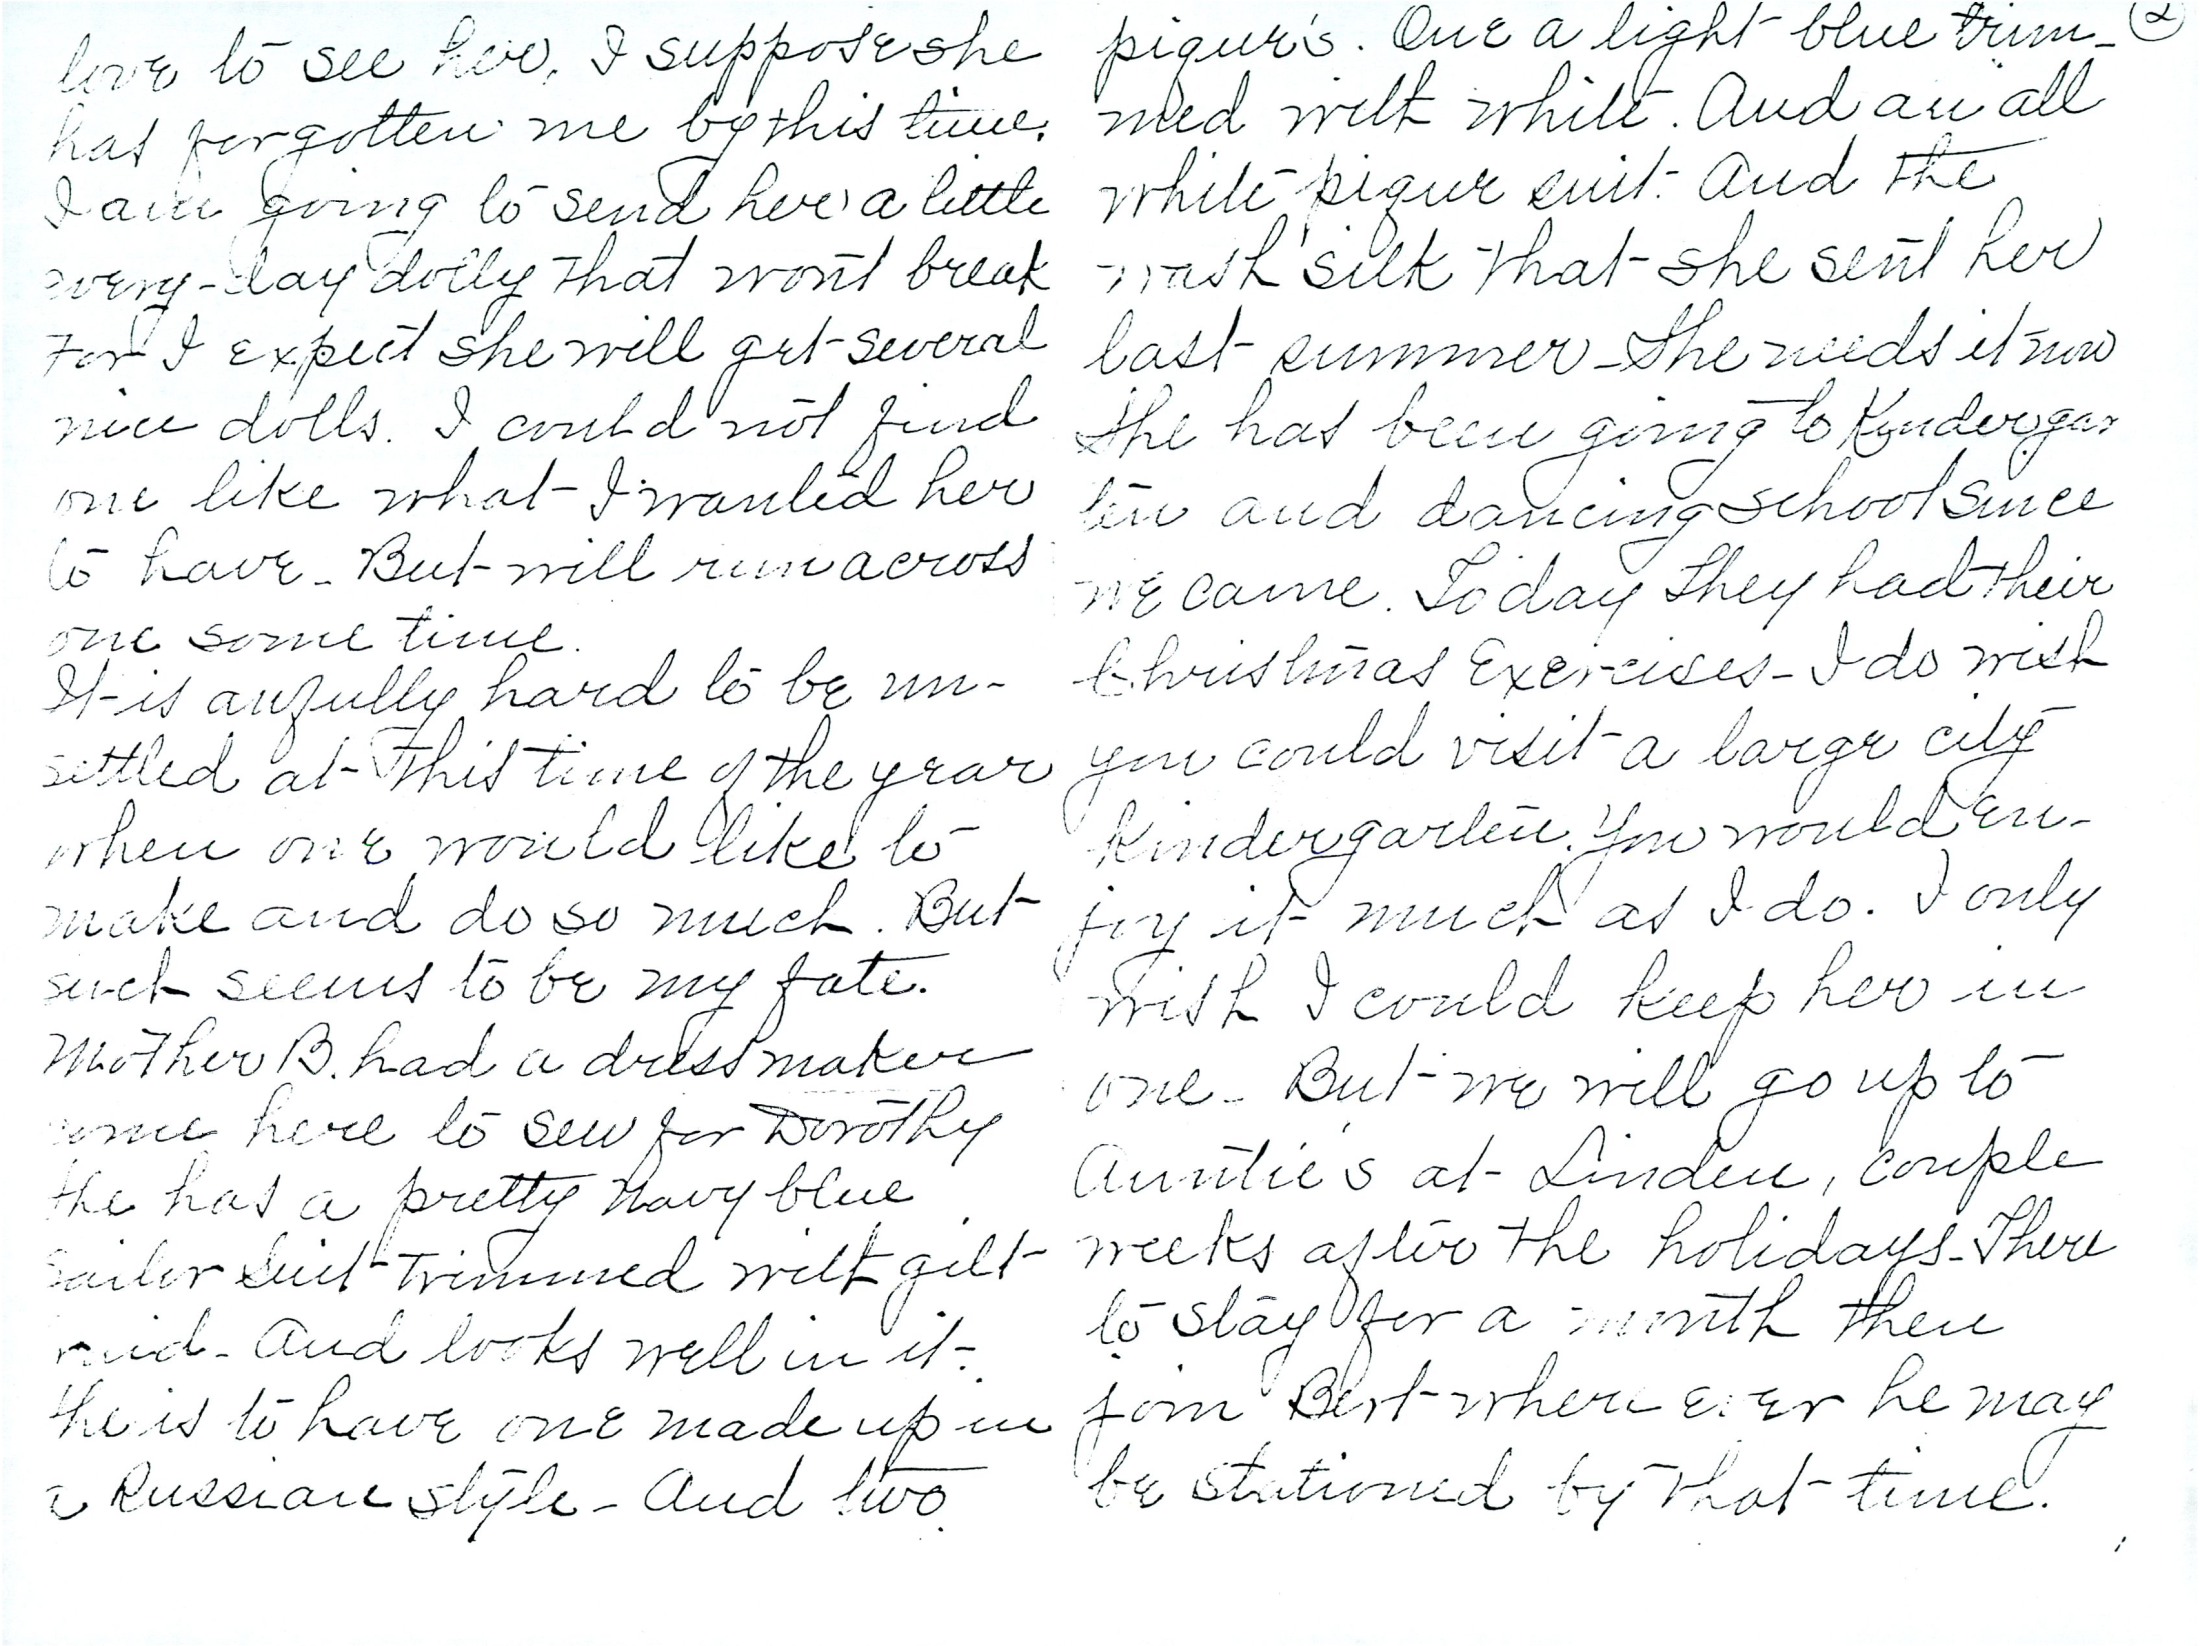 love to see her, I suppose she
has forgotten me by this time.
I am going to send her a little
every-day dolly that wont break
For I expect she will get several
nice dolls. I could not find
one like what I wanted her
to have - But will run across
one some time.
It is awfully hard to be un-
settled at this time of the year
when one would like to
make and do so much. But
such seems to be my fate.
Mother B. had a dressmaker
come here to sew for Dorothy
She has a pretty Navy blue
Sailor Suit trimmed with gilt
And looks well in it.
She is to have one made up in
a Russian style - And two
②
piques. One a light blue trim-
med with white. And an all
white pique suit. And the
wash silk that she sent her
last summer - She needs it now
She has been going to Kindergar
ten and dancing school since
we came. Today they had their
Christmas Exercises - I do wish
you could visit a large city
Kindergarten. You would en-
joy it much as I do. I only
wish I could keep her in
one - But we will go up to
Auntie's at Linden, couple
weeks after the holidays - There
to stay for a month then
join Bert where ever he may
be stationed by that time.